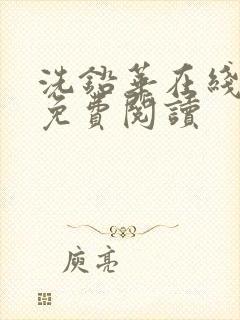 洗鉛華在綫
免費閱讀
庾亮